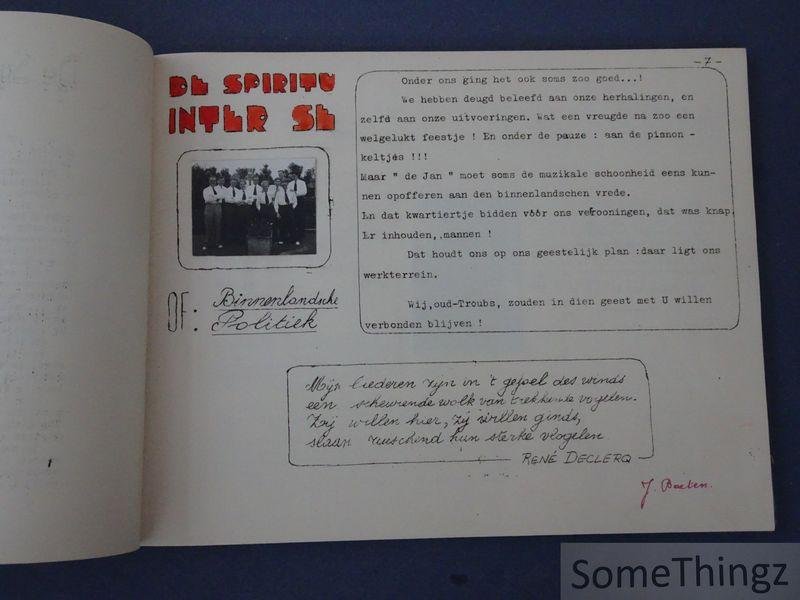 -7-
DE SPIRITU
INTER SE
OF: Binnenlandsche
Politiek
Onder ons ging het ook soms zoo goed...!
We hebben deugd beleefd aan onze herhalingen, en
zelfd aan onze uitvoeringen. Wat een vreugde na zoo een
welgelukt feestje ! En onder de pauze : aan de pisnon -
keltjes !!!
Maar " de Jan " moet soms de muzikale schoonheid eens kun-
nen opofferen aan den binnenlandschen vrede.
En dat kwartiertje bidden vóór ons vertooningen, dat was knap.
Er inhouden, mannen !
Dat houdt ons op ons geestelijk plan :daar ligt ons
werkterrein.
Wij,oud-Troubs, zouden in dien geest met U willen
verbonden blijven !
Mijn liederen zijn in 't gejoel des winds
een scheurende wolk van trekkende vogelen.
Zij willen hier, zij willen ginds,
slaan ruischend hun sterke vlogelen
RENÉ DECLERQ
J. Baeten.
SomeThingz